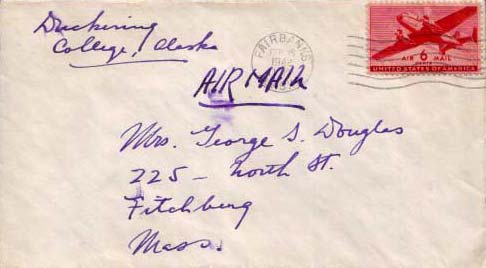 Duckering
College, Alaska
FAIRBANKS
AIR MAIL
AIR 6 MAIL
CENTS
UNITED STATES OF AMERICA
Mrs. George S. Douglas
225 - north St.
Fitchburg
Mass.